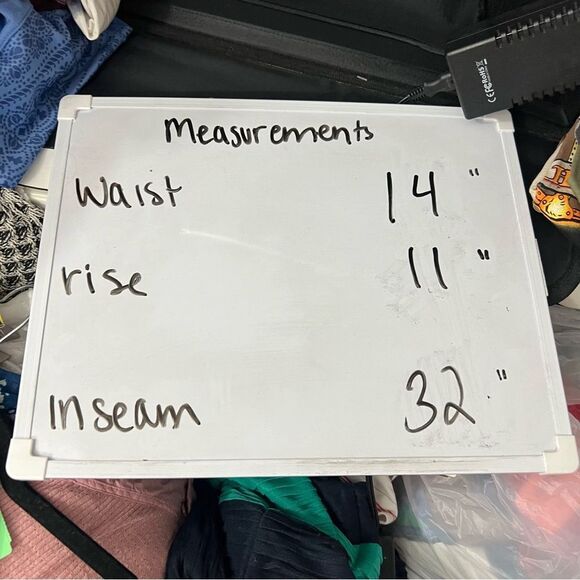 Measurements
Waist 14 "
rise 11 "
Inseam 32 . "